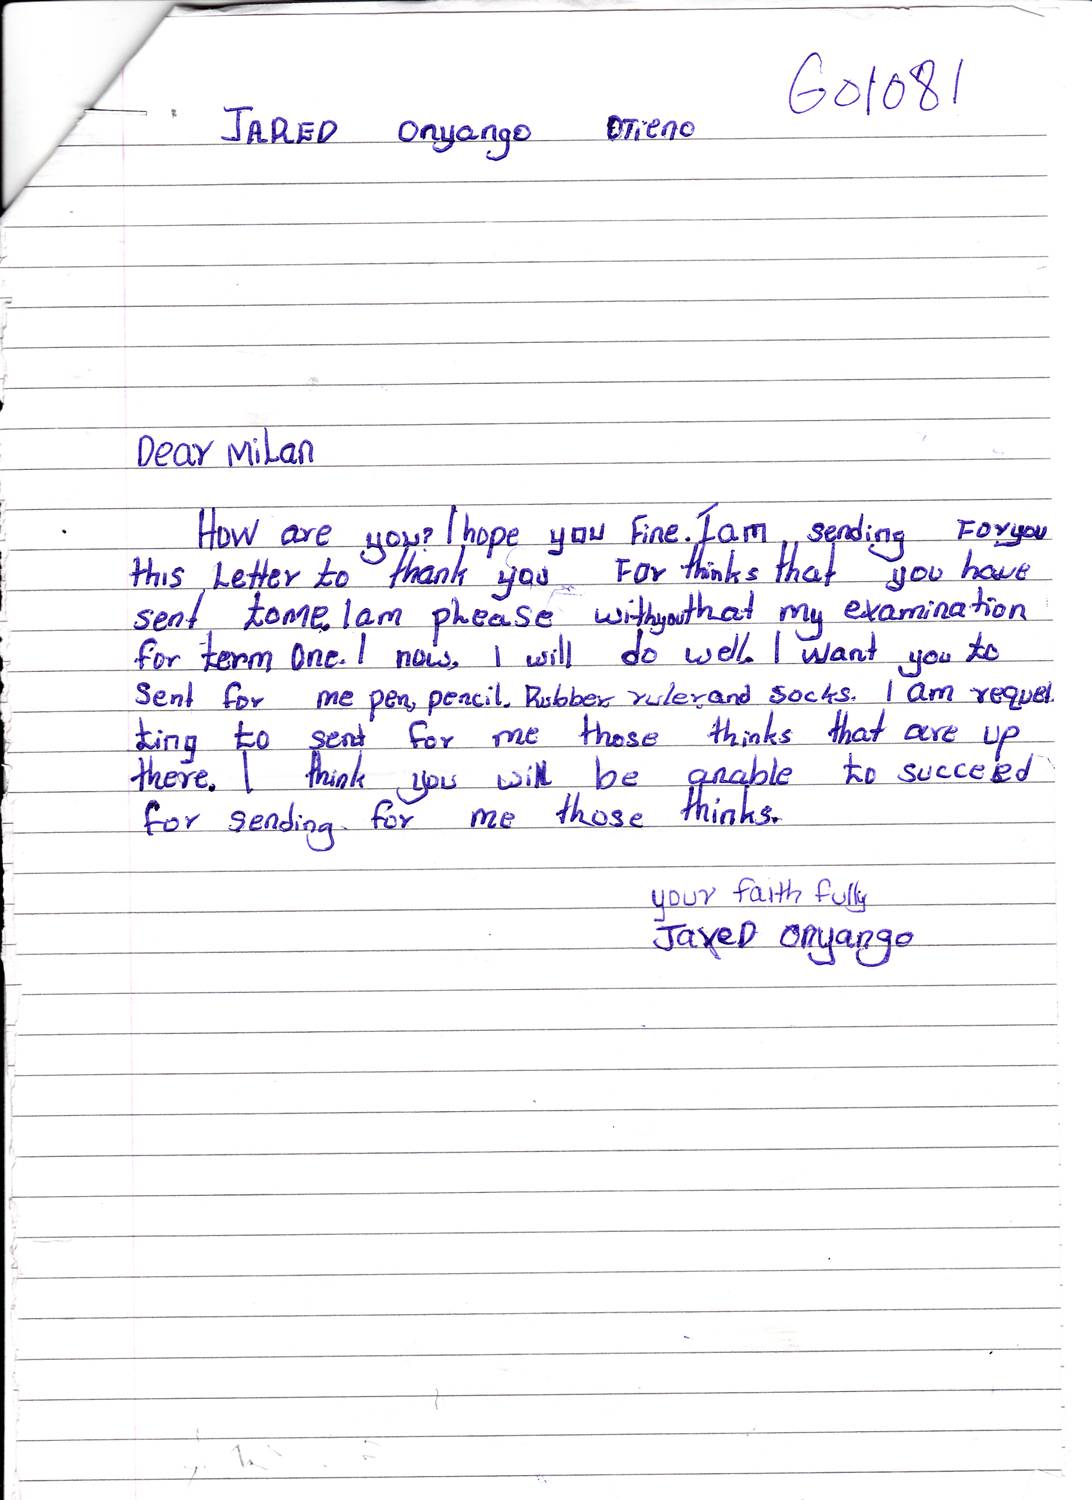 G01081
JARED Onyango OTieno
Dear MiLan
How are you? I hope you Fine. I am sending For you
this Letter to thank you For thinks that you have
sent tome. I am phease withyouthat my examination
for term One. I now, I will do well. I want you to
Sent for me pen, pencil. Rubber ruler, and socks. I am reques
ting to sent for me those thinks that are up
there. I think you will be anable to succeed
for sending for me those thinks.
your faith fully
JareD Onyango